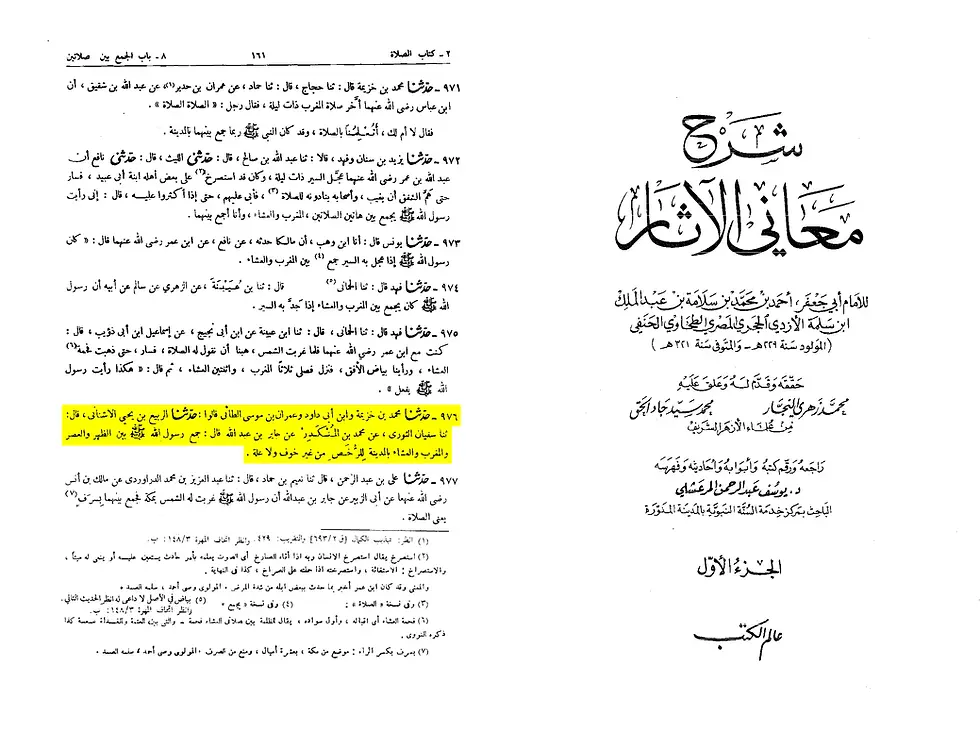 ٢ - كتاب الصلاة
١٦١
٨ - باب الجمع بين صلاتين
٩٧١ - حدثنا محمد بن خزيمة قال : ثنا حجاج ، قال : ثنا حماد ، عن عمران بن حدير(١) عن عبد الله بن شقيق ، أن
ابن عباس رضى الله عنهما أخَّر صلاة المغرب ذات ليلة ، فقال رجل : « الصلاة الصلاة » .
فقال لا أم لك ، أتُعلِمُنا بالصلاة ، وقد كان النبي ﷺ ربما جمع بينهما بالمدينة .
٩٧٢ - حدثنا يزيد بن سنان وفهد ، قالا : ثنا عبد الله بن صالح ، قال : حدثنى الليث ، قال : حدثنى نافع أن
عبد الله بن عمر رضى الله عنهما عجَّل السير ذات ليلة ، وكان قد استصرخ(٢) على بعض أهله ابنة أبى عبيد ، فسار
حتى همَّ الشفق أن يغيب ، وأصحابه ينادونه للصلاة (٣) ، فأبى عليهم ، حتى إذا أكثروا عليه ، قال : إنى رأيت
رسول الله ﷺ يجمع بين هاتين الصلاتين ، المغرب والعشاء ، وأنا أجمع بينهما .
٩٧٣ - حدثنا يونس قال : أنا ابن وهب ، أن مالكا حدثه ، عن نافع ، عن ابن عمر رضى الله عنهما قال : « كان
رسول الله ﷺ إذا عجل به السير جمع (٤) بين المغرب والعشاء .
٩٧٤ - حدثنا فهد قال : ثنا الحمانى (٥) قال : ثنا بن عُيَيْنَة ، عن الزهري عن سالم عن أبيه أن رسول
الله ﷺ كان يجمع بين المغرب والعشاء إذا جدَّ به السير .
٩٧٥ - حدثنا فهد قال : ثنا الحمانى ، قال : ثنا ابن عيينة عن ابن أبى نجيح ، عن إسماعيل ابن أبى ذؤيب ، قال :
كنت مع ابن عمر رضى الله عنهما فلما غربت الشمس ، هبنا أن نقول له الصلاة ، فسار ، حتى ذهبت فحمة(٦)
العشاء ، ورأينا بياض الأفق ، فنزل فصلى ثلاثا المغرب ، واثنتين العشاء ، ثم قال : « هكذا رأيت رسول
الله ﷺ يفعل » .
٩٧٦ - حدثنا محمد بن خزيمة وابن أبى داود وعمران بن موسى الطائى قالوا : حدثنا الربيع بن يحيى الأشنانى ، قال :
ثنا سفيان الثورى ، عن محمد بن المُنْكَدِر عن جابر بن عبد الله قال : جمع رسول الله ﷺ بين الظهر والعصر
والمغرب والعشاء بالمدينة للرُّخَص من غير خوف ولا علة .
٩٧٧ - حدثنا على بن عبد الرحمن ، قال : ثنا نعيم بن حماد ، قال : ثنا عبد العزيز بن محمد الدراوردى عن مالك بن أنس
رضى الله عنه عن أبى الزبير عن جابر بن عبدالله أن رسول الله ﷺ غربت له الشمس بمكة فجمع بينهما بِسَرِف(٧)
يعنى الصلاة .
(١) انظر: تهذيب الكمال (ق ٦٩٣/٢) والتقريب: ٤٢٩. وانظر اتحاف المهرة ١٤٨/٣: ب.
(٢) استصرخ يقال استصرخ الإنسان وبه إذا أتاه الصارخ أى الصوت يعلمه بأمر حادث يستعين عليه أو ينعى له ميتاً ،
والاستصراخ : الاستغاثة ، واستصرخته إذا حملته على الصراخ ، كذا فى النهاية .
والمعنى وقد كان ابن عمر أخبر بما حدث ببعض أهله من شدة المرض . المولوى وصى أحمد ، سلمه الصمد .
(٣) وفى نسخة « الصلاة » :
(٤) وفى نسخة « يجمع »
(٥) بياض في الأصل لا داعى له انظر الحديث التالى.
وانظر اتحاف المهرة ١٤٨/٣: ب.
(٦) فحمة العشاء أى اقباله ، وأول سواده ، يقال للظلمة بين صلاتى العشاء فحمة ـ والتى بين العتمة والغداة عسعسة كذا
ذكره النووى .
(٧) بسرف بكسر الراء : موضع من مكة ، بعشرة أميال ، ومنع من الصرف . المولوى وصى أحمد ، سلمه الصمد .
شرح
معاني الآثار
للإمام أبي جعفر، أحمد بن محمد بن سلامة بن عبد الملك
ابن سلمة الأزدي الحجري المصري الطحاوي الحنفي
(المولود سنة ٢٢٩ هـ - والمتوفى سنة ٣٢١ هـ)
حققه وقدم له وعلق عليه
محمد زهري النجار
محمد سيد جاد الحق
من علماء الأزهر الشريف
راجعه ورقم كتبه وأبوابه وأحاديثه وفهرسه
د. يوسف عبد الرحمن المرعشلي
الباحث بمركز خدمة السنة النبوية بالمدينة المنورة
الجزء الأول
عالم الكتب